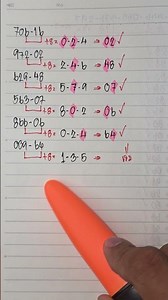 706-16
+8= 0-2-4 → 02 ✓
972-02
+8= 2-4-6 → 48 ✓
629-48
+8= 5-7-9 → 07 ✓
563-07
+8= 8-0-2 → 06 ✓
866-06
+8= 0-2-4 → 64 ✓
009-64
+8= 1-3-5 →